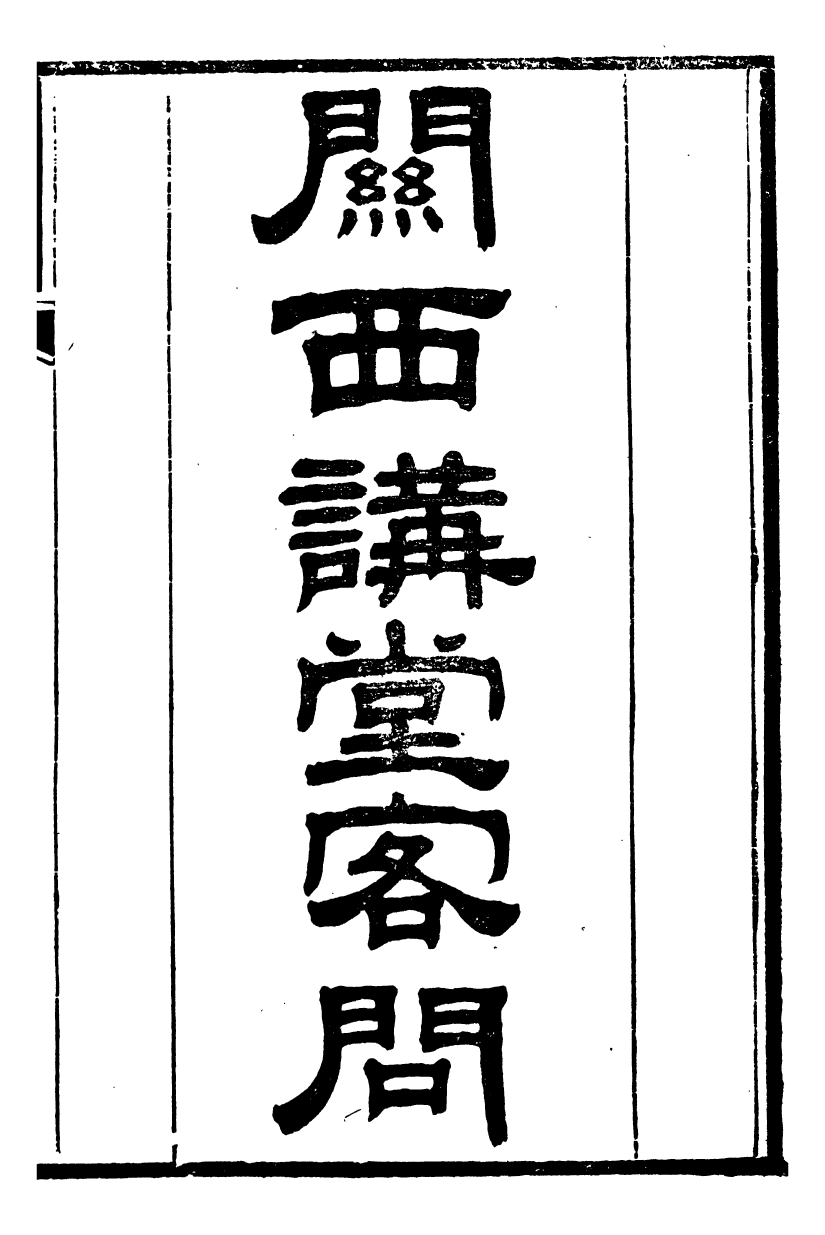 關西講堂客問